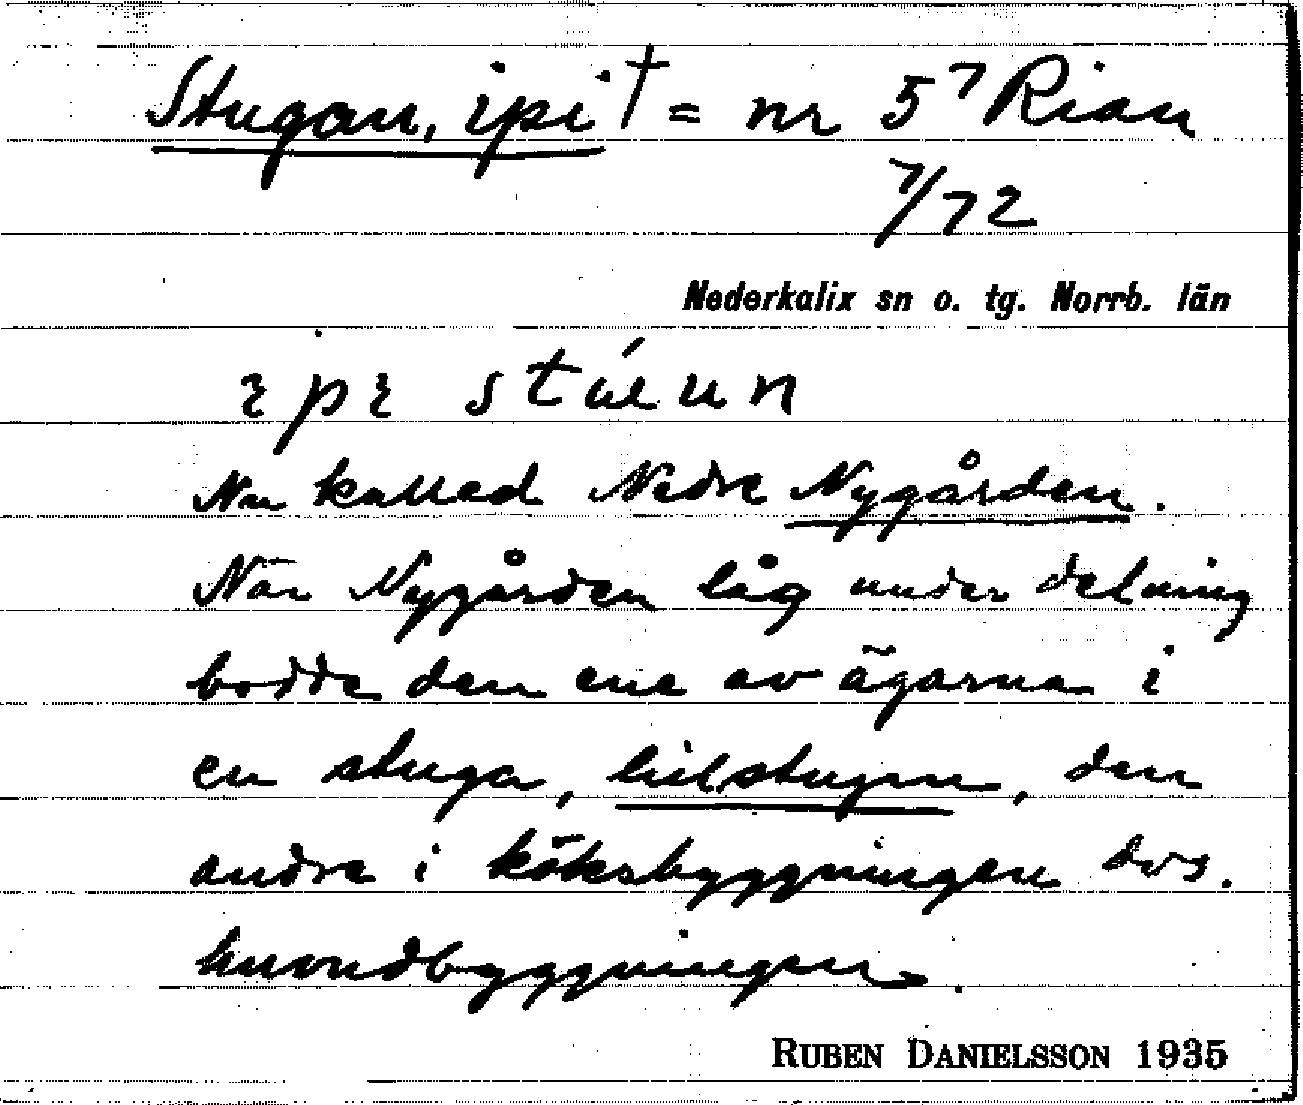 Stugan, ipi † = nr 5⁷ Rian
7/72
Nederkalix sn o. tg. Norrb. län
ipi
Nu kallad Nedre Nygården.
När Nygården låg under delning
bodde den ene av ägarna i
en stuga, lilstugun, den
andre i köksbyggningen dvs.
huvudbyggningen.
RUBEN DANIELSSON 1935